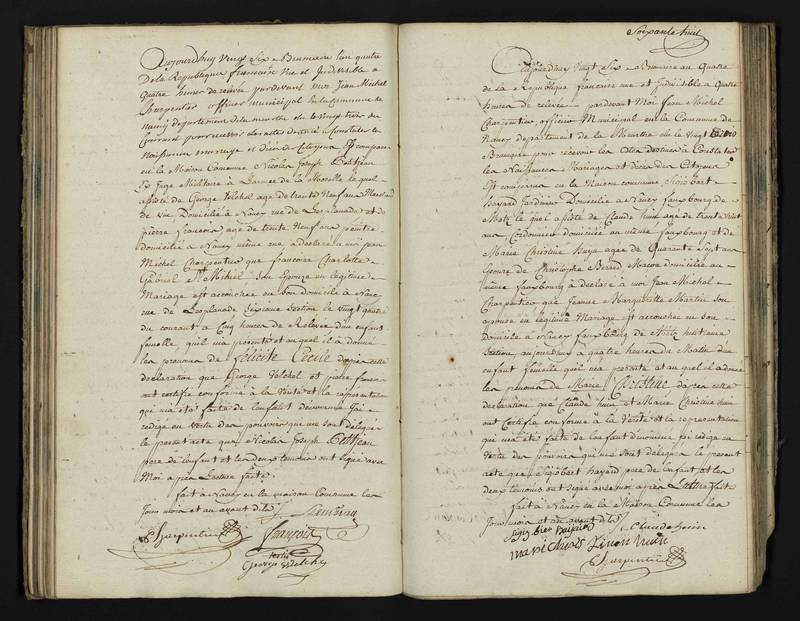 Aujourd'huy vingt Six Brumaire l'an quatre
De la Republique francaise une et Indivisible a
quatre heures de relevée pardevant moi Jean Michel
Charpentier officier municipal de la Commune de
nancy departement de la meurthe elu le vingt trois du
Courant pour recevoir les actes destinés a Constater les
naissances mariages et décès des Citoyens Est comparu
en la Maison Commune Nicolas Joseph Petitjean
Militaire à l'armée de la Moselle lequel
assisté de George Velchel agé de trente Neuf ans Marchand
de Vin Domicilié a Nancy rue de l'esplanade et de
pierre francois agé de trente Neuf ans peintre
domicilié a Nancy même rue a declaré a moi Jean
Michel Charpentier que francoise Charlotte
Gabriel St Mihiel son Epouse en légitime
Mariage est accouchée en son domicile à Nancy
rue de l'esplanade Section le vingt quatre
du courant a Cinq heures de Relevée d'un enfant
femelle qu'il m'a présenté et auquel il a donné
les prenoms de félicité Cécile d'après cette
déclaration que George Velchel et pierre francois
ont certifié conforme à la Vérité et la représentation
qui m'a été faite de l'enfant dénommé J'ai
rédigé en vertu des pouvoirs qui me sont délégués
le présent acte que Nicolas Joseph Petitjean
pere de l'enfant et les deux temoins ont signé avec
Moi apres Lecture faite.
fait à Nancy en la maison Commune les
Jour mois et an avant dits
Charpentier francois
George Velchel
Soixante huit
Aujourd'huy Vingt Six Brumaire an Quatre
de la République francaise une et Indivisible a Quatre
heures de relevée pardevant Moi Jean Michel
Charpentier officier Municipal en la Commune de
Nancy departement de la Meurthe elu le vingt trois
Brumaire pour recevoir les Actes destinés à Constater
les Naissances Mariages et décès des Citoyens
Est comparu en la Maison commune Sigisbert
hayard Jardinier Domicilié a Nancy fauxbourg de
Metz lequel assisté de Claude huin agé de trente huit
ans Cordonnier domicilié au même fauxbourg et de
Marie Christine agée de Quarante Sept ans
Epouse de Christophe Macon domicilié au
même fauxbourg à déclaré à moi Jean Michel
Charpentier que Jeanne Marguerite Martin son
epouse en légitime Mariage est accouchée en son
domicile a Nancy fauxbourg de Metz huitieme
Section, aujourd'huy à quatre heures du Matin d'un
enfant femelle qu'il m'a présenté et auquel il a donné
les prenoms de Marie Christine d'après cette
déclaration que Claude huin et Marie Christine
ont Certifié conforme à la Vérité et la représentation
qui m'a été faite de l'enfant dénommé J'ai rédigé en
Vertu des pouvoirs qui me sont délégués le présent
acte que Sigisbert hayard pere de l'enfant et les
deux temoins ont signé avec moi après Lecture faite
fait à Nancy en la Maison Commune les
Jour mois et an avant dits
Claude huin
Charpentier